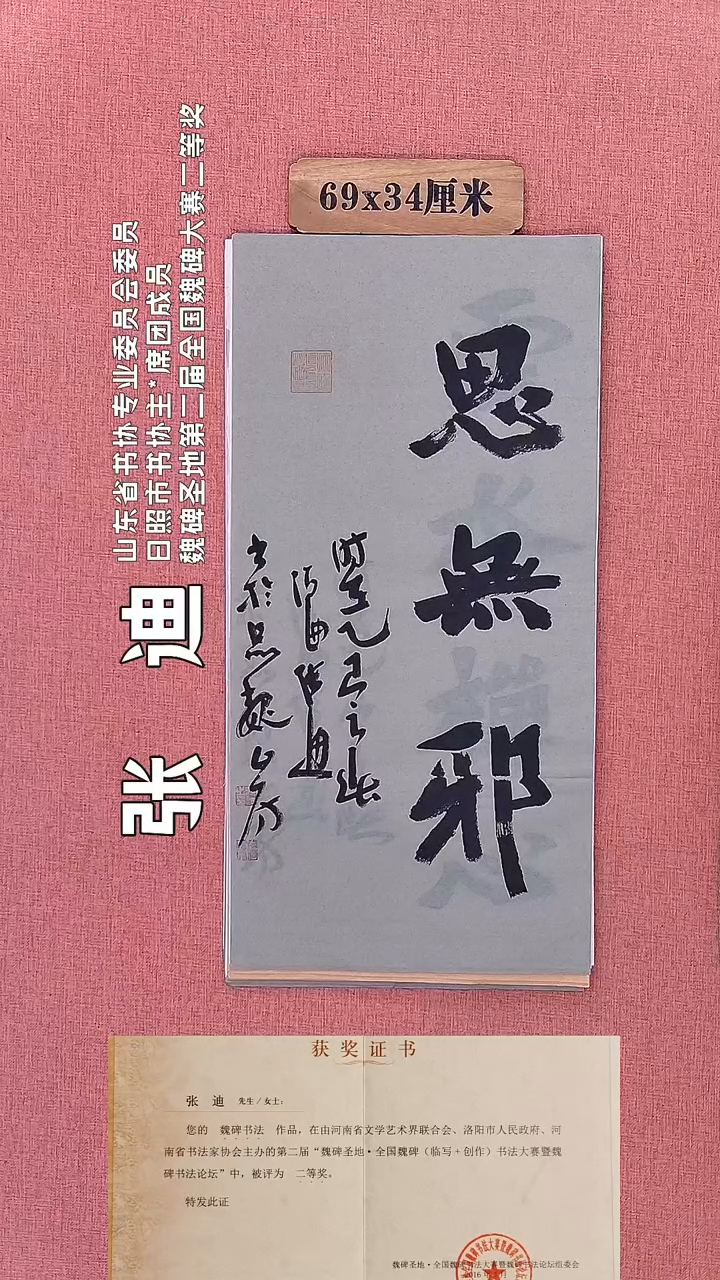 69x34厘米
思無邪
時在乙巳之秋
張迪
書於是魏山房
山东省书协专业委员会委员
日照市书协主*席团成员
魏碑圣地第二届全国魏碑大赛二等奖
张 迪
获奖证书
张 迪 先生/女士:
您的 魏碑书法 作品,在由河南省文学艺术界联合会、洛阳市人民政府、河
南省书法家协会主办的第二届“魏碑圣地·全国魏碑(临写+创作)书法大赛暨魏
碑书法论坛”中,被评为 二等奖。
特发此证
魏碑圣地·全国魏碑书法大赛暨魏碑书法论坛组委会